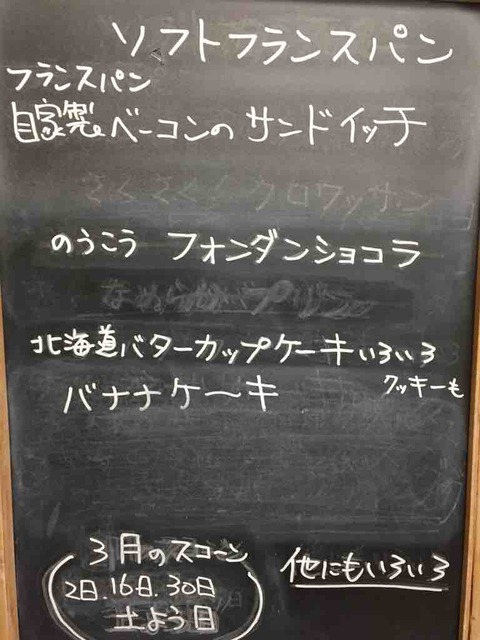 ソフトフランスパン
フランスパン
自家製ベーコンの サンドイッチ
さくさく クロワッサン
のうこう フォンダンショコラ
北海道バターカップケーキいろいろ
クッキーも
バナナケーキ
3月のスコーン
2日.16日.30日
土よう日
他にもいろいろ